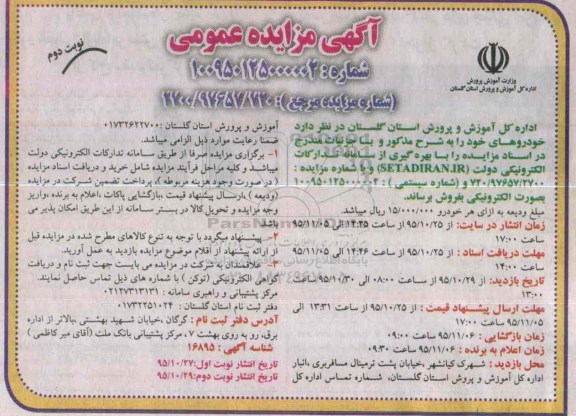 آگهی مزایده عمومی
شماره: ۱۰۰۹۵۰۱۲۵۰۰۰۰۰۲
(شماره مزایده مرجع): ۷۲۰/۹۷۶۵۷/۲۷۰۰
نوبت دوم
وزارت آموزش پرورش
اداره کل آموزش و پرورش استان گلستان
اداره کل آموزش و پرورش استان گلستان در نظر دارد
خودروهای خود را به شرح مذکور و با جزئیات مندرج
در اسناد مزایده را با بهره گیری از سامانه تدارکات
الکترونیکی دولت (SETADIRAN.IR) و با شماره مزایده :
۷۲۰/۹۷۶۵۷/۲۷۰۰ و (شماره سیستمی) : ۱۰۰۹۵۰۱۲۵۰۰۰۰۰۲
بصورت الکترونیکی بفروش برساند.
مبلغ ودیعه به ازای هر خودرو ۱۵/۰۰۰/۰۰۰ ریال میباشد.
زمان انتشار در سایت: از ۹۵/۱۰/۲۵ از ساعت ۱۴:۴۵ الی ۹۵/۱۱/۰۵
ساعت ۱۷:۰۰
مهلت دریافت اسناد : از ۹۵/۱۰/۲۵ از ساعت ۱۴:۴۶ الی ۹۵/۱۱/۰۵
ساعت ۱۴:۰۰
تاریخ بازدید: از ۹۵/۱۰/۲۹ از ساعت ۰۸:۰۰ الی ۹۵/۱۰/۳۰ ساعت
۱۳:۰۰
مهلت ارسال پیشنهاد قیمت : از ۹۵/۱۰/۲۵ از ساعت ۱۳:۳۱ الی
۹۵/۱۱/۰۵ ساعت ۱۷:۰۰
زمان بازگشایی : ۹۵/۱۱/۰۶ ساعت ۰۹:۰۰
زمان اعلام به برنده : ۹۵/۱۱/۰۶ ساعت ۰۹:۳۰
محل بازدید : شهرک کیانشهر ،خیابان پشت ترمینال مسافربری ،انبار
اداره کل آموزش و پرورش استان گلستان، شماره تماس اداره کل
آموزش و پرورش استان گلستان : ۰۱۷۳۲۶۲۲۷۰۰
ضمنا رعایت موارد ذیل الزامی میباشد.
۱- برگزاری مزایده صرفا از طریق سامانه تدارکات الکترونیکی دولت
میباشد و کلیه مراحل فرآیند مزایده شامل خرید و دریافت اسناد مزایده
( در صورت وجود هزینه مربوطه )، پرداخت تضمین شرکت در مزایده
(ودیعه ) ،ارسال پیشنهاد قیمت ،بازگشایی پاکات ،اعلام به برنده ،واریز
وجه مزایده و تحویل کالا در بستر سامانه از این طریق امکان پذیر می
باشد
۲- پیشنهاد میگردد با توجه به تنوع کالاهای مطرح شده در مزایده قبل
از ارائه پیشنهاد از اقلام موضوع مزایده بازدید به عمل آورید.
۳- علاقمندان به شرکت در مزایده می بایست جهت ثبت نام و دریافت
گواهی الکترونیکی (توکن ) با شماره های ذیل تماس حاصل نمایند.
مرکز پشتیبانی و راهبری سامانه : ۰۲۱۲۷۳۱۳۱۳۱
دفتر ثبت نام استان گلستان : ۰۱۷۳۲۲۵۱۰۲۴
آدرس دفتر ثبت نام : گرگان ،خیابان شهید بهشتی ،بالاتر از اداره
برق، رو به روی بهشت ۷، مرکز پشتیبانی بانک ملت (آقای میر کاظمی )
شناسه آگهی : ۱۶۸۹۵
تاریخ انتشار نوبت اول: ۹۵/۱۰/۲۷
تاریخ انتشار نوبت دوم: ۹۵/۱۰/۲۹